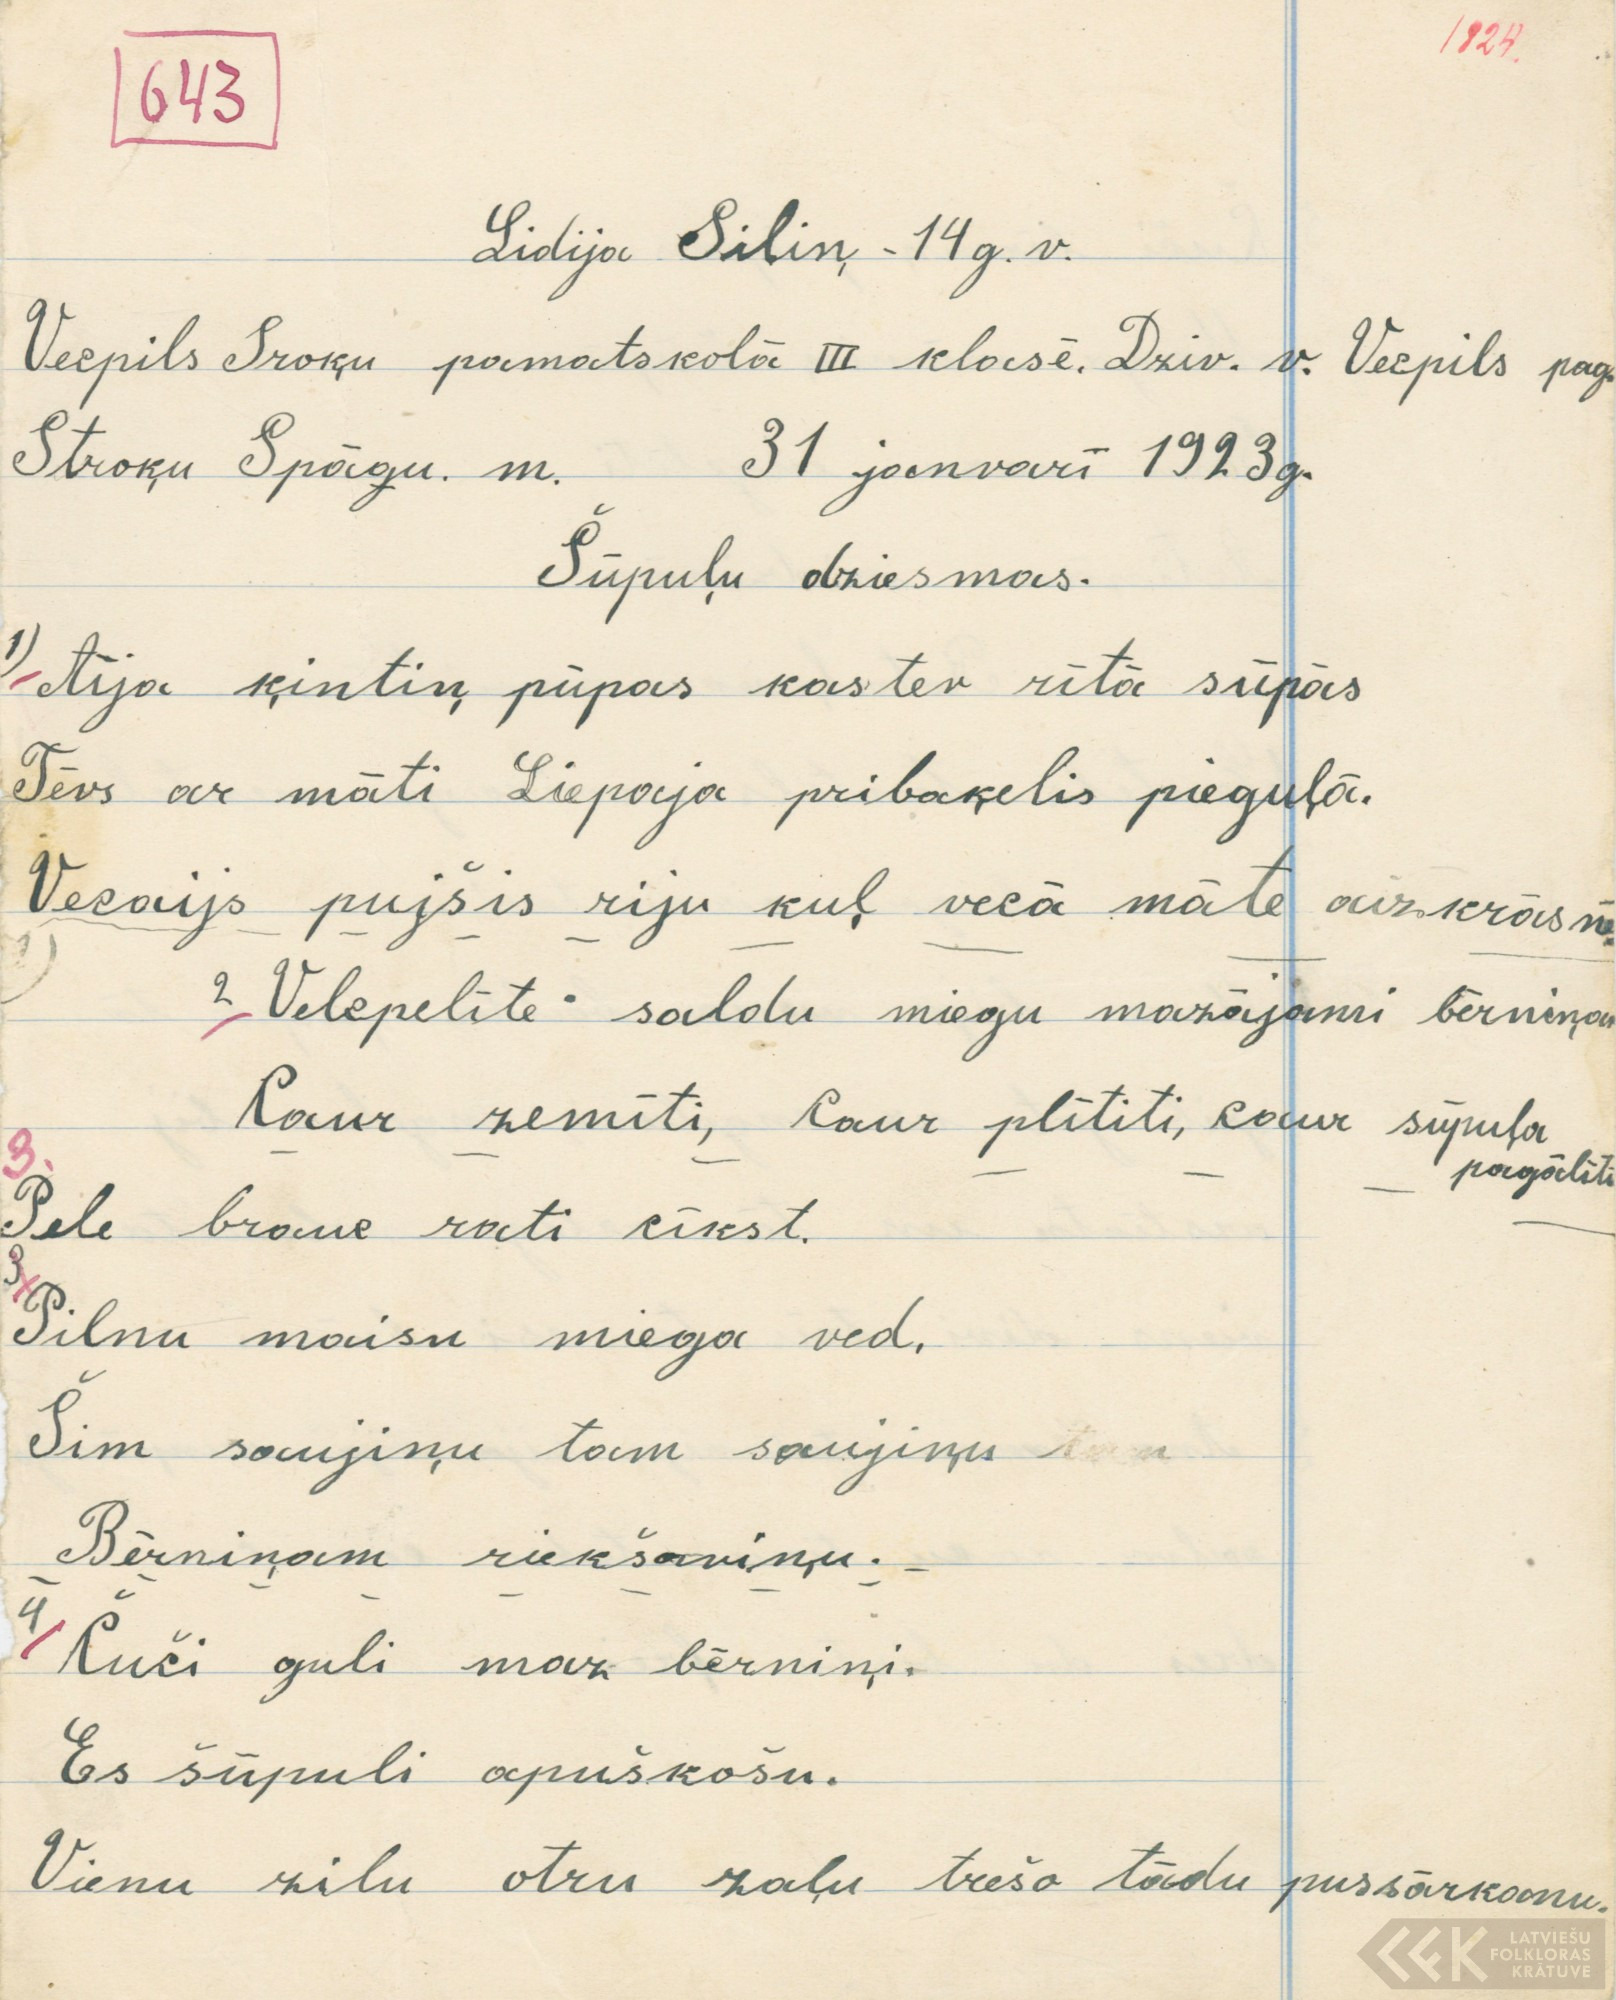 643
1924.
Lidija Siliņ - 14 g. v.
Vecpils Sroķu pamatskolā III klasē. Dziv. v. Vecpils pag.
Stroķu Spāgu. m. 31 janvarī 1923g.
Šūpuļu dziesmas.
1) Aija ķintiņ pūpas kastev rītā sūpās
Tēvs ar māti Liepaja pribaķelis pieguļā.
Vecaijs pujšis riju kuļ vecā māte aizkrāsnē.
1)
2 Velcpelīte saldu miegu mazājami bērniņam
Caur zemīti, caur plītiti, caur sūpuļa
pagālīti
3.
Pele brauc rati cīkst.
3
Pilnu maisu miega ved.
Šim saujiņu tam saujiņu tam
Bērniņam riekšaviņu.
4 Čuči guli maz bērniņi.
Es šūpuli apuškošu.
Vienu zilu otru zaļu trešo tādu pussārkoanu.
LATVIEŠU
FOLKLORAS
KRĀTUVE